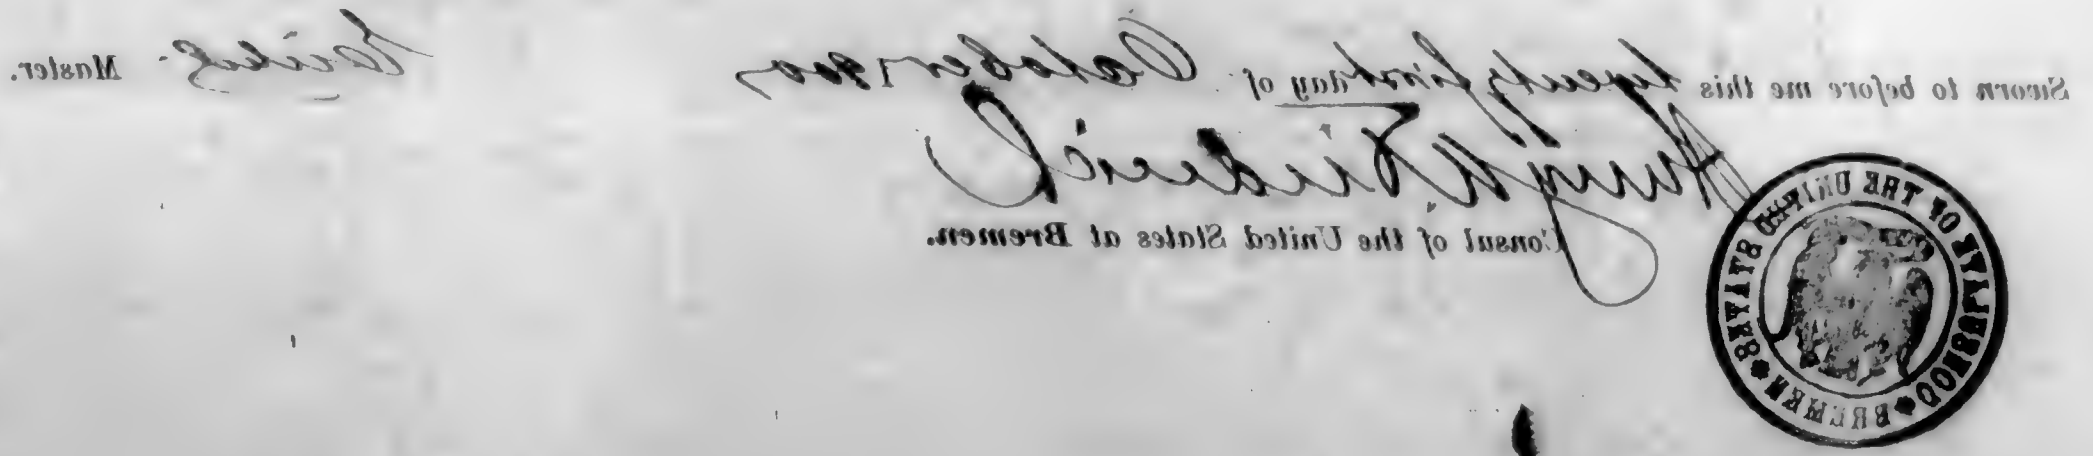 Sworn to before me this twenty first day of October 1900 Master.
Henry W. Diederich
Consul of the United States at Bremen.
CONSULATE OF THE UNITED STATES
BREMEN